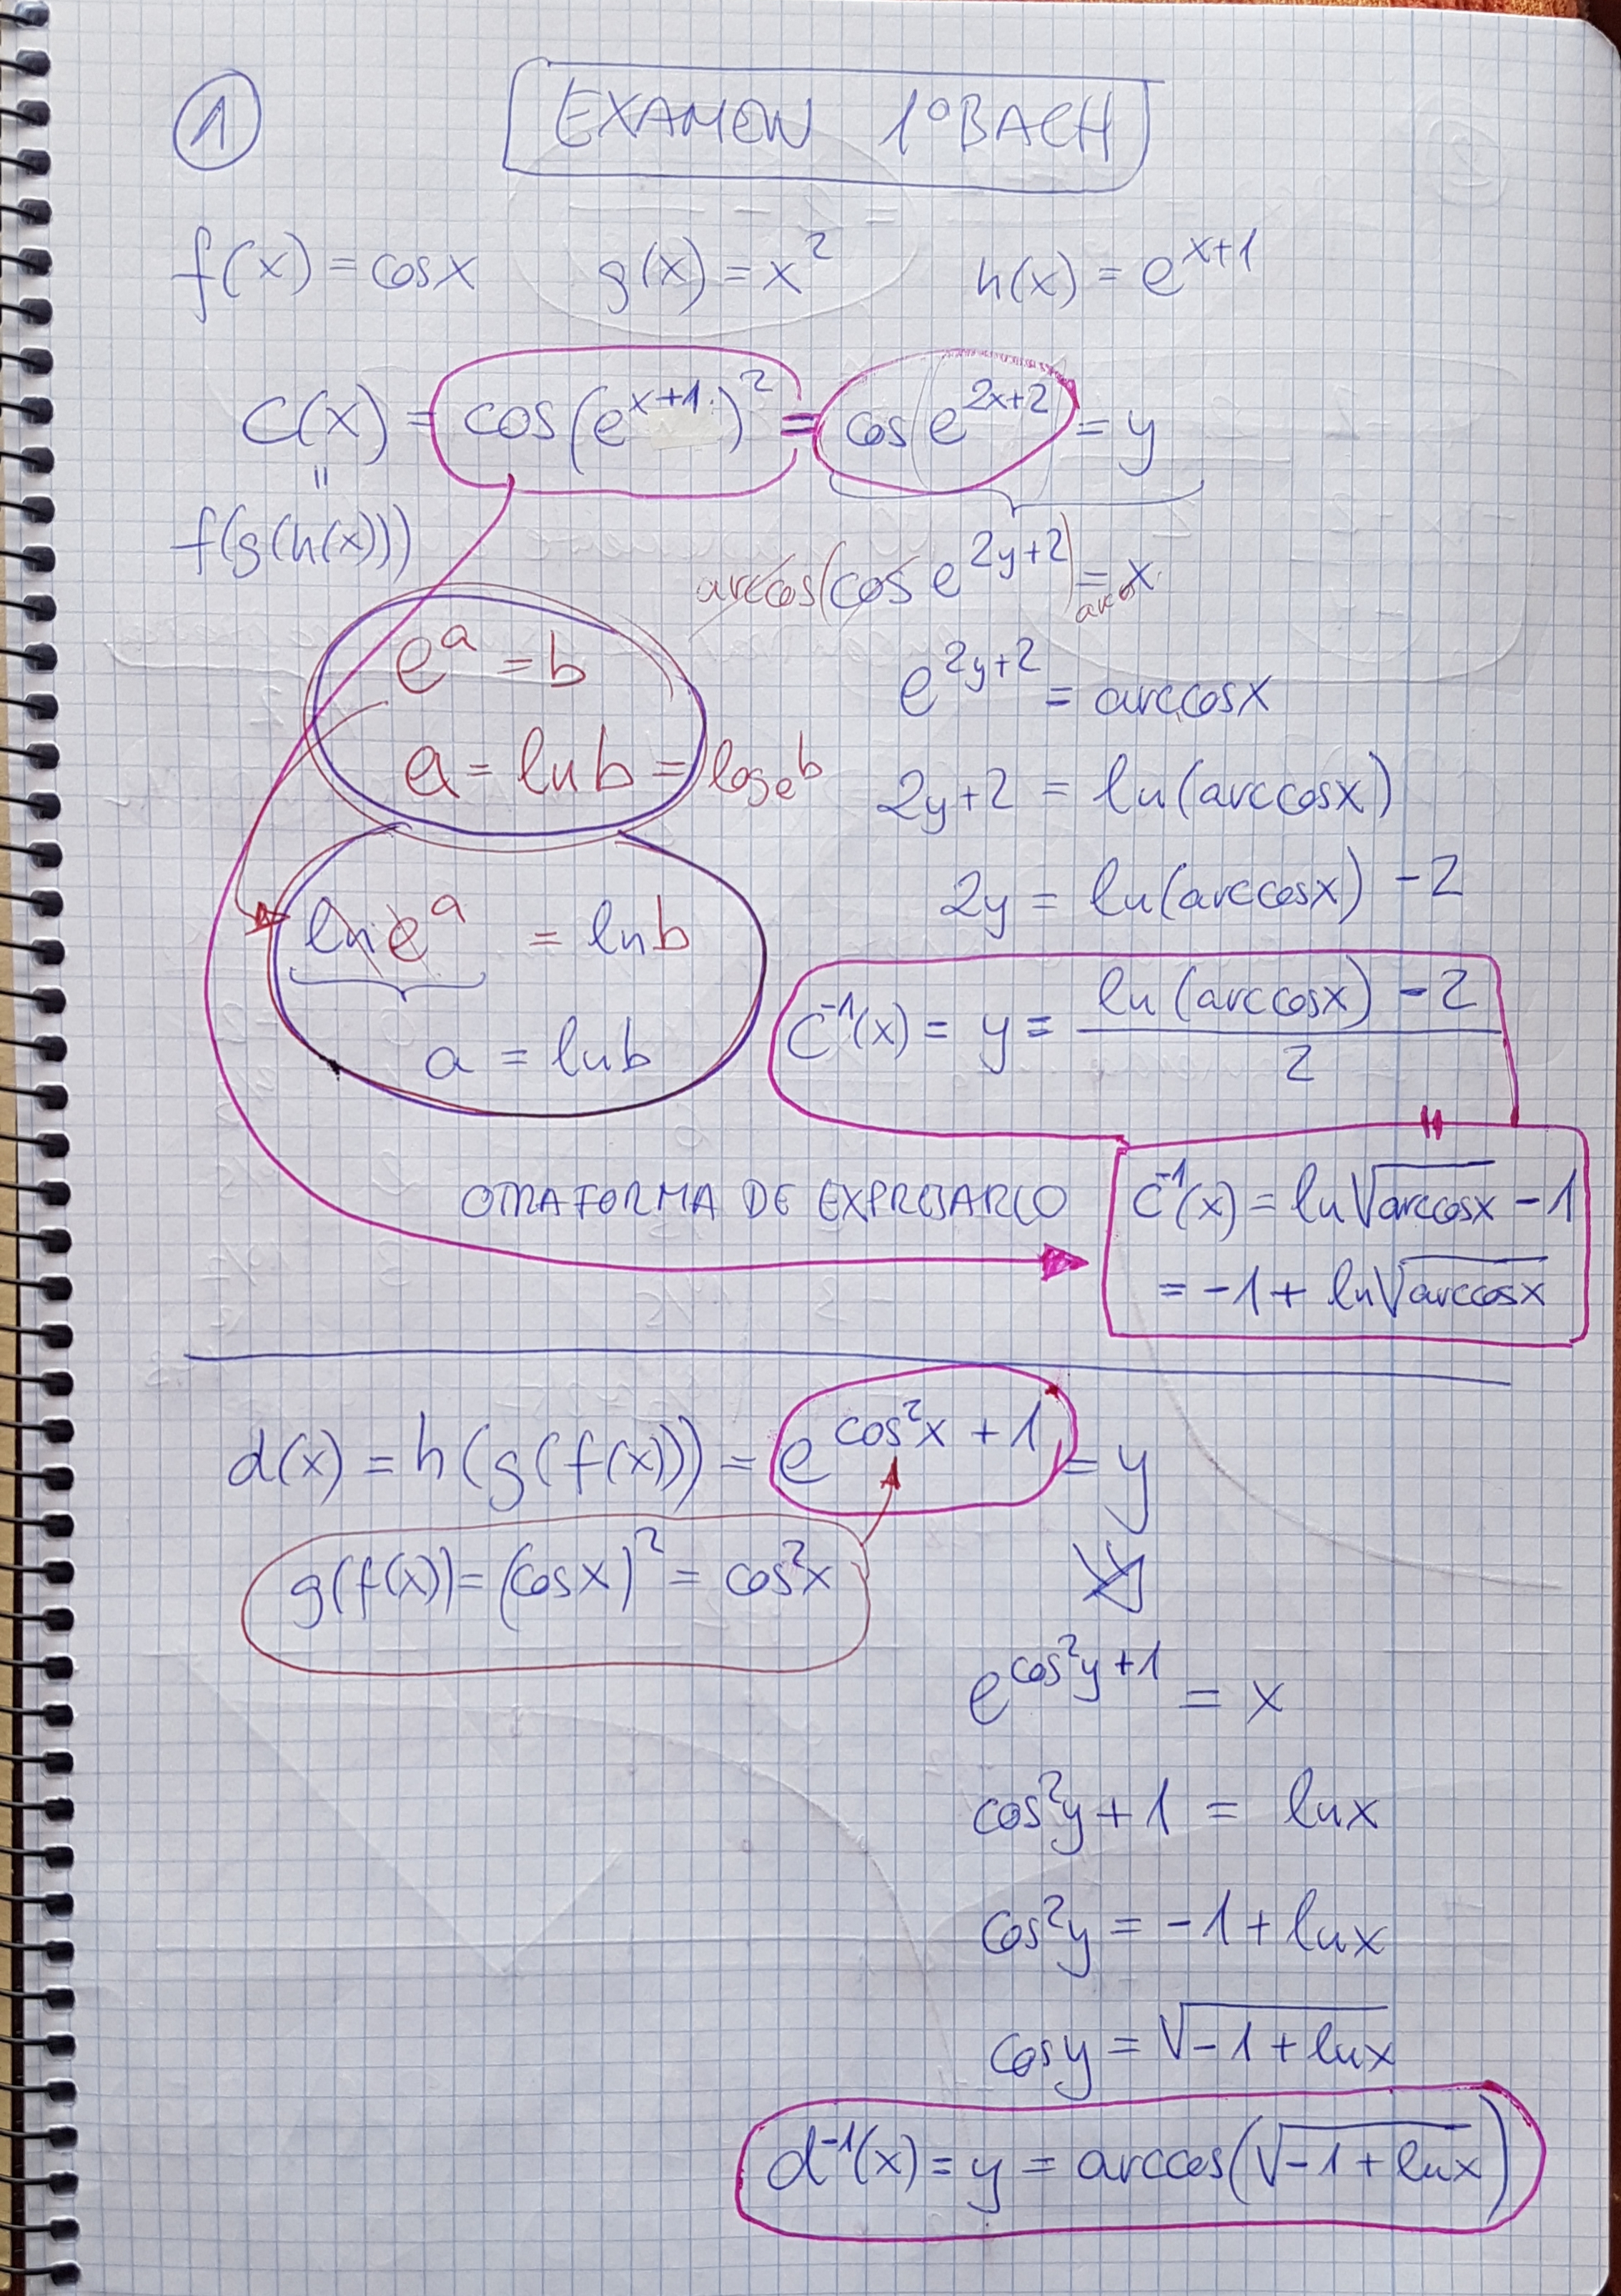 ① EXAMEN 1ºBACH
f(x) = cosx g(x) = x² h(x) = e^{x+1}
C(x) = cos(e^{x+1})² = cos e^{2x+2} = y
=
f(g(h(x)))
arccos(cos e^{2y+2}) = arccos x
e^a = b
a = ln b = log_e b
ln e^a = ln b
a = ln b
e^{2y+2} = arccosx
2y+2 = ln(arccosx)
2y = ln(arccosx) - 2
C⁻¹(x) = y = \frac{ln(arccosx) - 2}{2}
=
OTRA FORMA DE EXPRESARLO
C⁻¹(x) = ln√(arccosx) - 1
= -1 + ln√(arccosx)
d(x) = h(g(f(x))) = e^{cos²x + 1} = y
g(f(x)) = (cosx)² = cos²x
e^{cos²y+1} = x
cos²y + 1 = lnx
cos²y = -1 + lnx
cosy = √(-1 + lnx)
d⁻¹(x) = y = arccos(√(-1 + lnx))